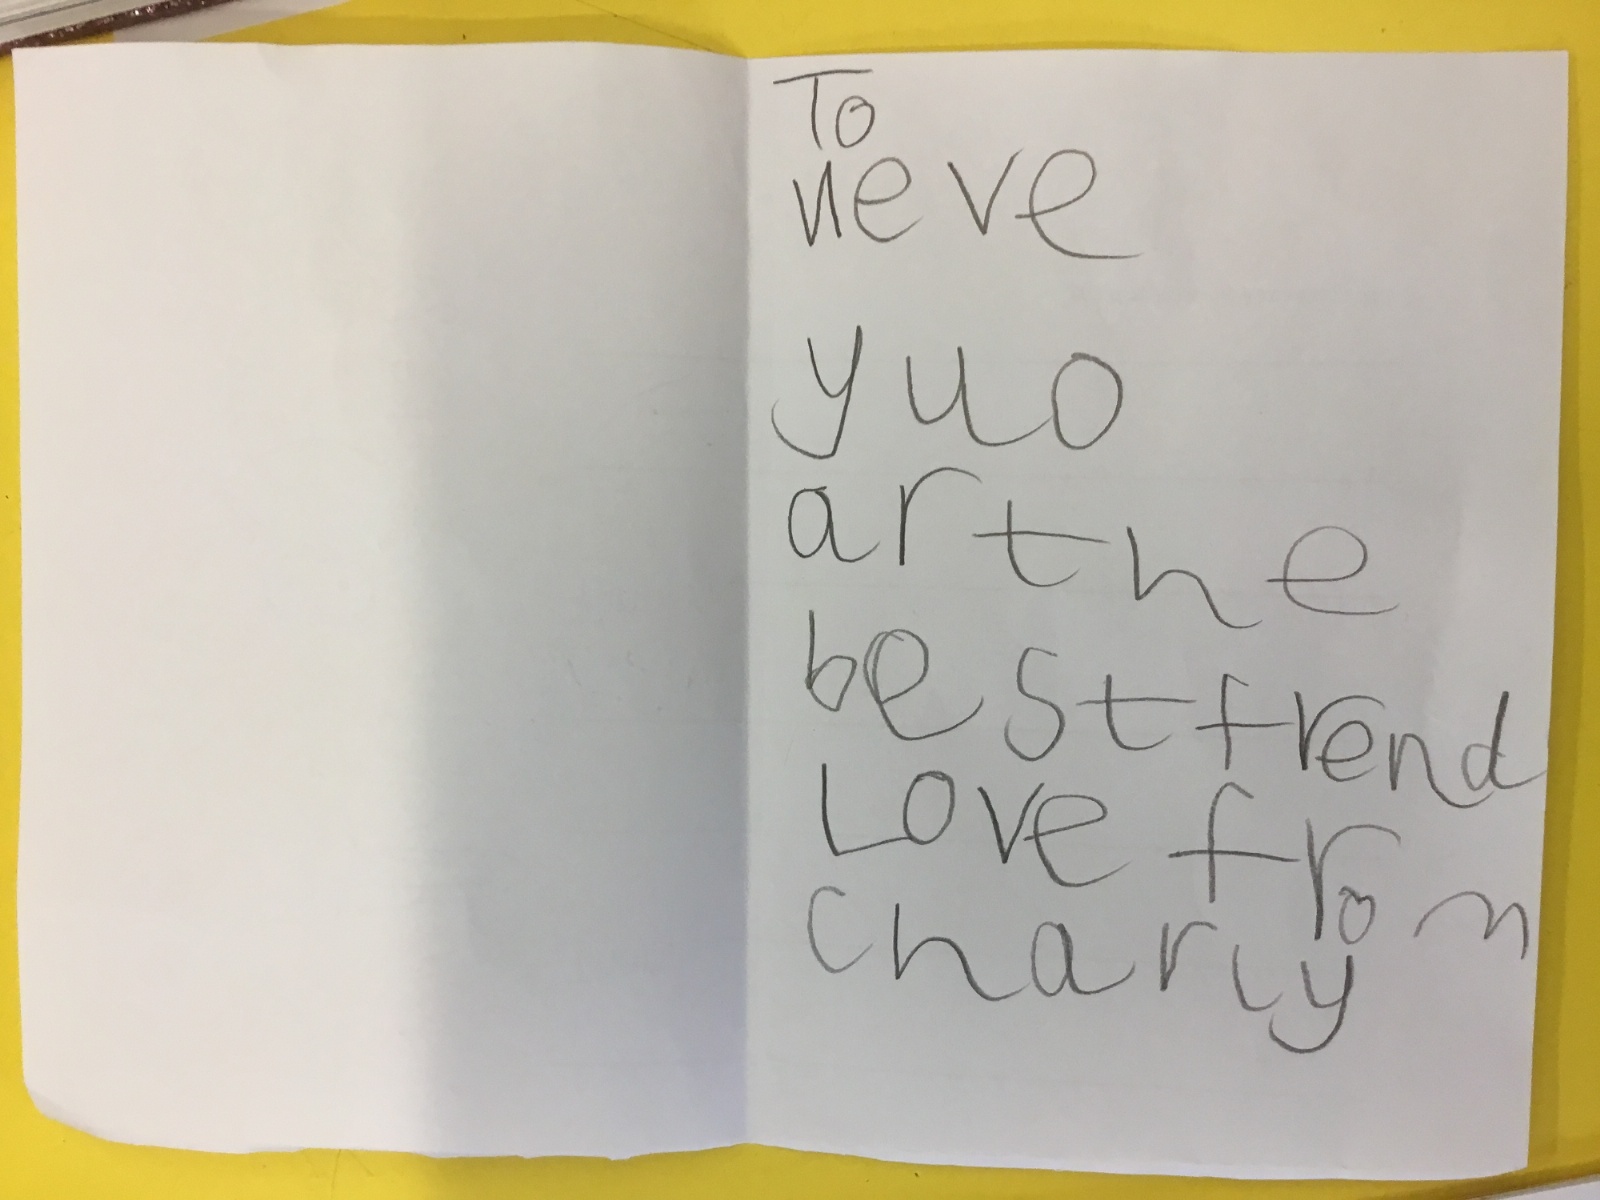 To
neve
yuo
ar the
best frend
Love from
Charly